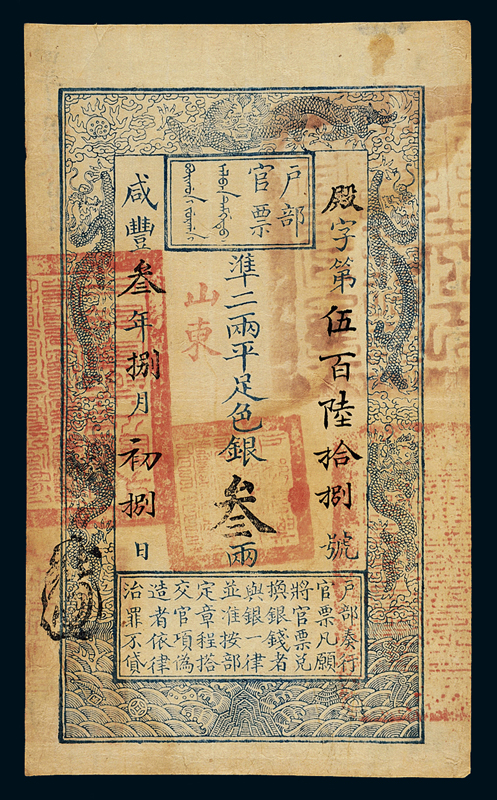 戶部
官票
殿字第伍百陸拾捌號
準二兩平足色銀叁兩
山東
咸豐叁年捌月初捌日
戶部奏行
官票凡願
將官票兌
換銀錢者
與銀一律
並准按部
定章程搭
交官項偽
造者依律
治罪不貸